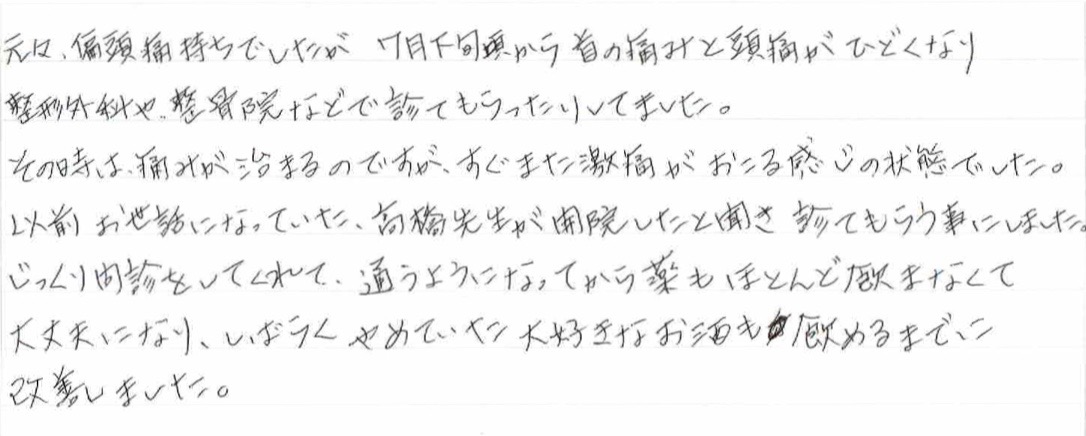 元々、偏頭痛持ちでしたが 7月下旬頃から首の痛みと頭痛がひどくなり
整形外科や、整骨院などで診てもらったりしてました。
その時は、痛みが治まるのですが、すぐまた激痛がおこる感じの状態でした。
以前お世話になっていた、高橋先生が開院したと聞き 診てもらう事にしました。
じっくり問診をしてくれて、通うようになってから薬もほとんど飲まなくて
大丈夫になり、しばらくやめていた大好きなお酒も飲めるまでに
改善しました。